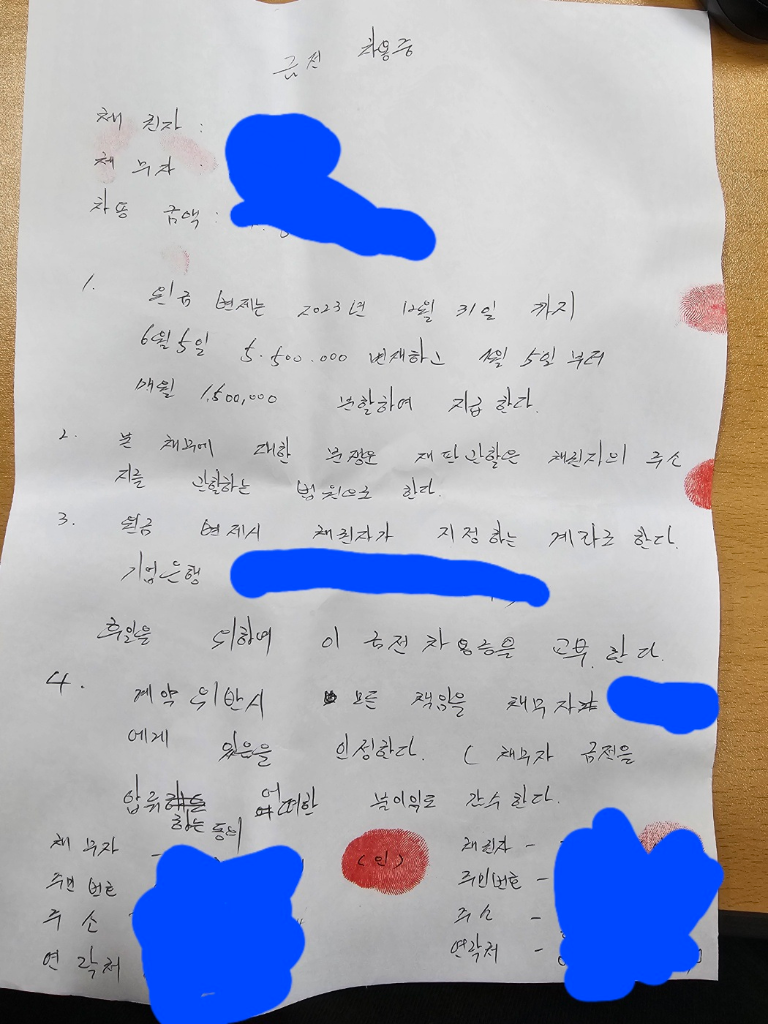 금전 차용증
채권자 :
채무자 :
차용 금액 :
1. 원금 변제는 2023년 12월 31일 까지
6월 5일 5.500.000 변재하고 월 5일 부터
매월 1,500,000 분할하여 지급 한다.
2. 본 채무에 대한 분쟁은 재판관할은 채권자의 주소
지를 관할하는 법원으로 한다.
3. 원금 변제시 채권자가 지정하는 계좌로 한다.
기업은행
후일을 위하여 이 금전 차용증을 교부 한다.
4. 계약 위반시 모든 책임을 채무자
에게 있음을 인정한다. ( 채무자 금전을
압류 어떠한 불이익도 감수 한다.
하는 등의
채무자 - (인) 채권자 -
주민 번호 주민번호 -
주소 주소 -
연락처 연락처 -